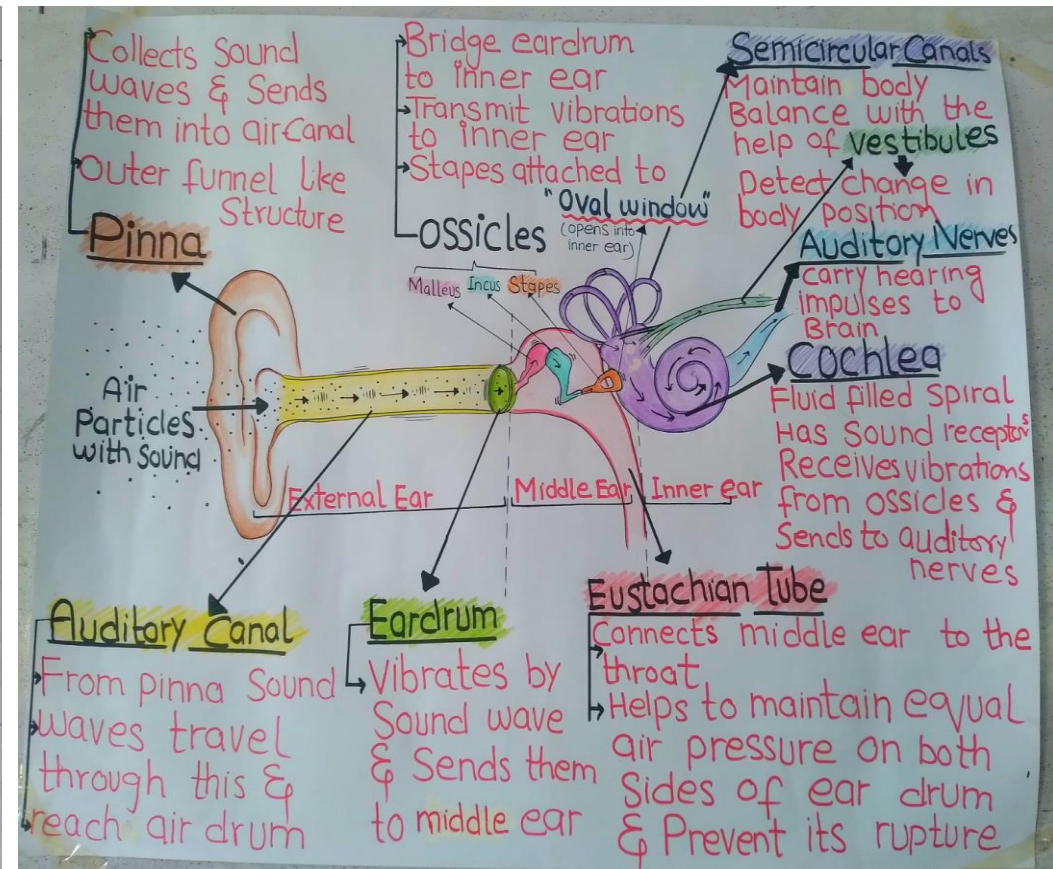 Collects Sound
waves & Sends
them into air Canal
Outer funnel like
Structure
Pinna
Bridge eardrum
to inner ear
Transmit vibrations
to inner ear
Stapes attached to
"Oval window"
(opens into
inner ear)
OSSICLES
Malleus Incus Stapes
Semicircular Canals
Maintain body
Balance with the
help of vestibules
Detect change in
body position
Auditory Nerves
carry hearing
impulses to
Brain
Cochlea
Fluid filled Spiral
Has Sound receptors
Receives vibrations
from ossicles &
Sends to auditory
nerves
Air
Particles
with Sound
External Ear
Middle Ear
Inner ear
Auditory Canal
From pinna Sound
waves travel
through this &
reach air drum
Eardrum
Vibrates by
Sound wave
& Sends them
to middle ear
Eustachian Tube
Connects middle ear to the
throat
Helps to maintain equal
air pressure on both
Sides of ear drum
& Prevent its rupture